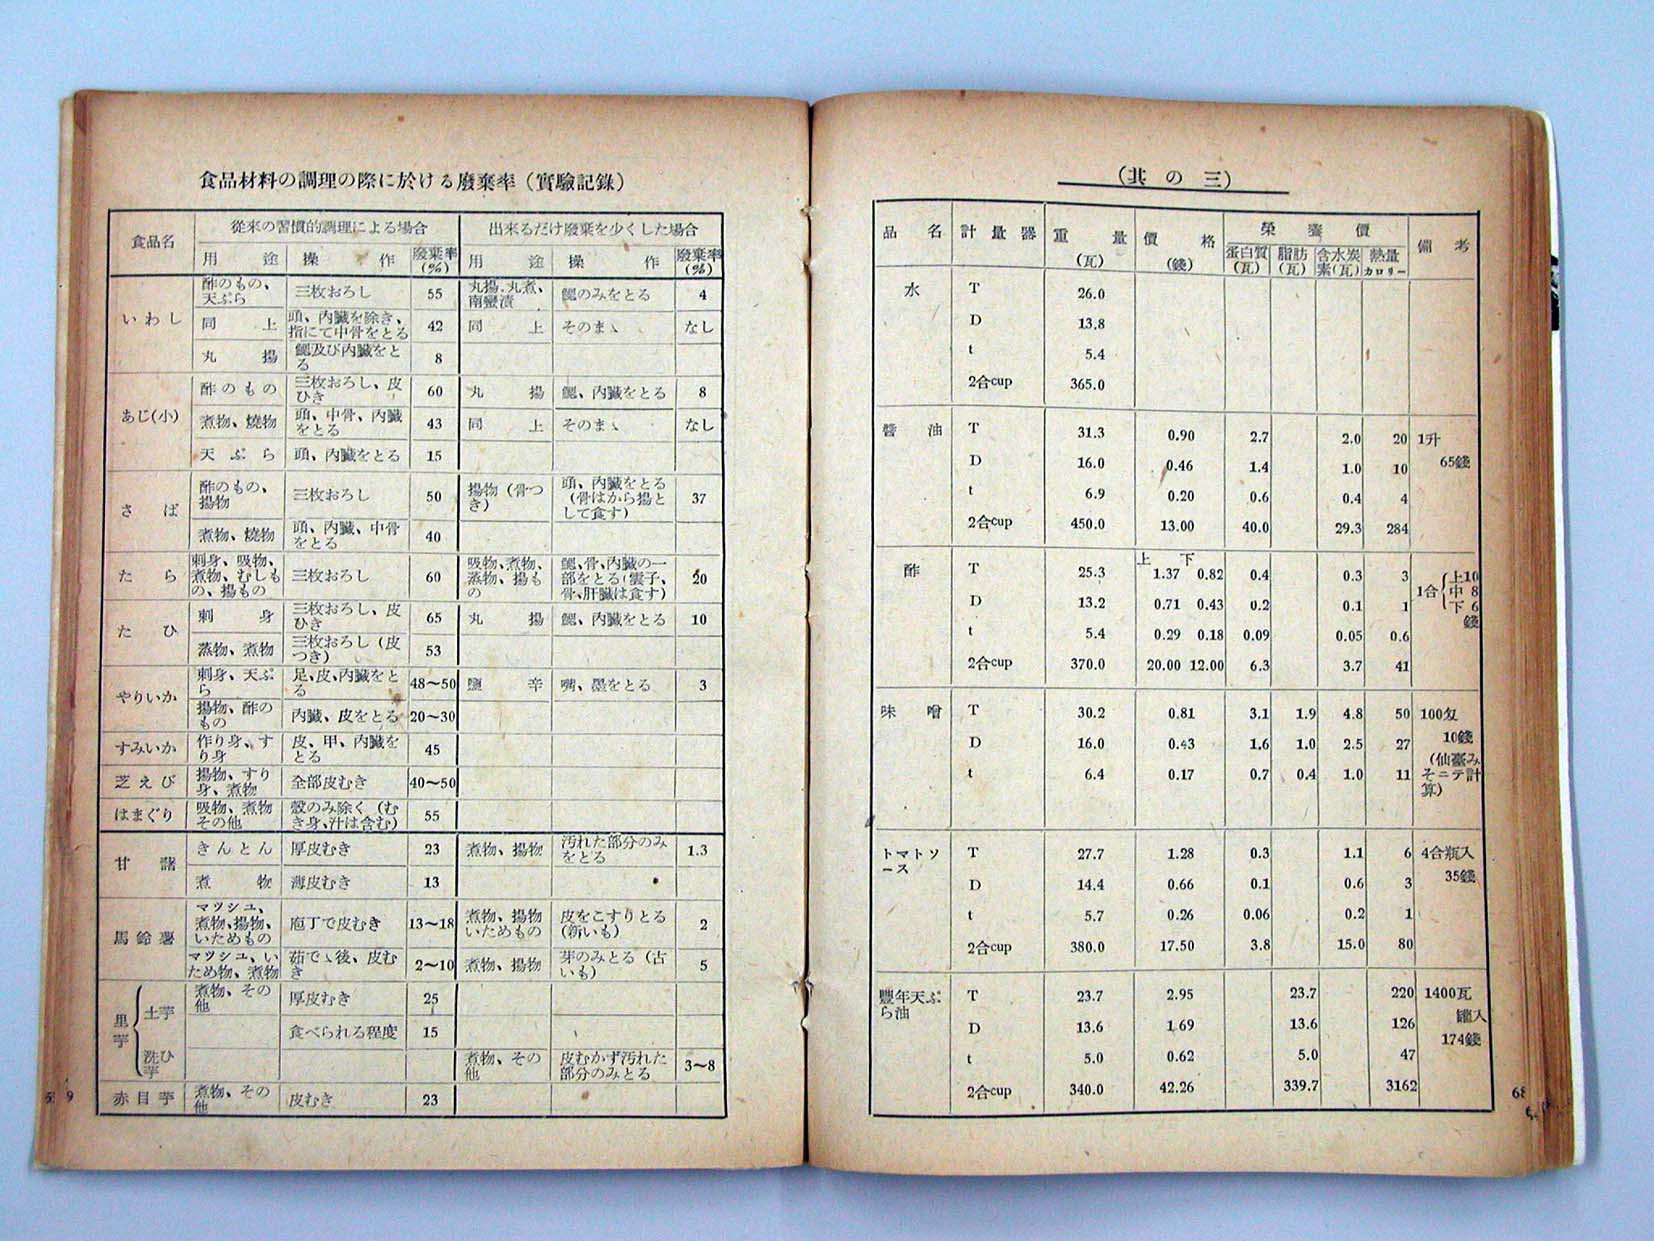 食品材料の調理の際に於ける廢棄率(實驗記錄)
食品名 從來の習慣的調理による場合 出來るだけ廢棄を少くした場合
用途 操作 廢棄率(%) 用途 操作 廢棄率(%)
いわし 酢のもの、天ぷら 三枚おろし 55 丸揚、丸煮、南蠻漬 鰓のみをとる 4
同上 頭、內臟を除き、指にて中骨をとる 42 同上 そのまゝ なし
丸揚 鰓及び內臟をとる 8
あじ(小) 酢のもの 三枚おろし、皮ひき 60 丸揚 鰓、內臟をとる 8
煮物、燒物 頭、中骨、內臟をとる 43 同上 そのまゝ なし
天ぷら 頭、內臟をとる 15
さば 酢のもの、揚物 三枚おろし 50 揚物(骨つき) 頭、內臟をとる(骨はから揚として食す) 37
煮物、燒物 頭、內臟、中骨をとる 40
たら 刺身、吸物、煮物、むしもの、揚もの 三枚おろし 60 吸物、煮物、蒸物、揚もの 鰓、骨、內臟の一部をとる(雲子、骨、肝臟は食す) 20
たひ 刺身 三枚おろし、皮ひき 65 丸揚 鰓、內臟をとる 10
蒸物、煮物 三枚おろし(皮つき) 53
やりいか 刺身、天ぷら 足、皮、內臟をとる 48〜50 鹽辛 嘴、墨をとる 3
揚物、酢のもの 內臟、皮をとる 20〜30
すみいか 作り身、すり身 皮、甲、內臟をとる 45
芝えび 揚物、すり身、煮物 全部皮むき 40〜50
はまぐり 吸物、煮物その他 殼のみ除く(むき身、汁は含む) 55
甘藷 きんとん 厚皮むき 23 煮物、揚物 汚れた部分のみをとる 1.3
煮物 薄皮むき 13
馬鈴薯 マツシユ、煮物、揚物、いためもの 庖丁で皮むき 13〜18 煮物、揚物いためもの 皮をこすりとる(新いも) 2
マツシユ、いため物、煮物 茹でゝ後、皮むき 2〜10 煮物、揚物 芽のみとる(古いも) 5
里芋 土芋 煮物、その他 厚皮むき 25
食べられる程度 15
洗ひ芋 煮物、その他 皮むかず汚れた部分のみとる 3〜8
赤目芋 煮物、その他 皮むき 23
(其の三)
品名 計量器 重量(瓦) 價格(錢) 榮養價 備考
蛋白質(瓦) 脂肪(瓦) 含水炭素(瓦) 熱量カロリー
水 T 26.0
D 13.8
t 5.4
2合cup 365.0
醬油 T 31.3 0.90 2.7 2.0 20 1升
D 16.0 0.46 1.4 1.0 10 65錢
t 6.9 0.20 0.6 0.4 4
2合cup 450.0 13.00 40.0 29.3 284
上 下
酢 T 25.3 1.37 0.82 0.4 0.3 3 1合{上10
D 13.2 0.71 0.43 0.2 0.1 1 中 8 下 6
t 5.4 0.29 0.18 0.09 0.05 0.6 錢
2合cup 370.0 20.00 12.00 6.3 3.7 41
味噌 T 30.2 0.81 3.1 1.9 4.8 50 100匁
D 16.0 0.43 1.6 1.0 2.5 27 10錢
t 6.4 0.17 0.7 0.4 1.0 11 (仙臺みそニテ計算)
トマトソース T 27.7 1.28 0.3 1.1 6 4合瓶入
D 14.4 0.66 0.1 0.6 3 35錢
t 5.7 0.26 0.06 0.2 1
2合cup 380.0 17.50 3.8 15.0 80
豐年天ぷら油 T 23.7 2.95 23.7 220 1400瓦
D 13.6 1.69 13.6 126 罐入
t 5.0 0.62 5.0 47 174錢
2合cup 340.0 42.26 339.7 3162
68